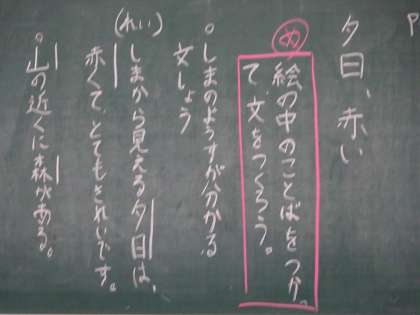 夕日、赤い
め
絵の中のことばをつかっ
て、文をつくろう。
○しまのようすが分かる
文しょう
(れい)
しまから見える夕日は、
赤くて、とてもきれいです。
○山の近くに森がある。